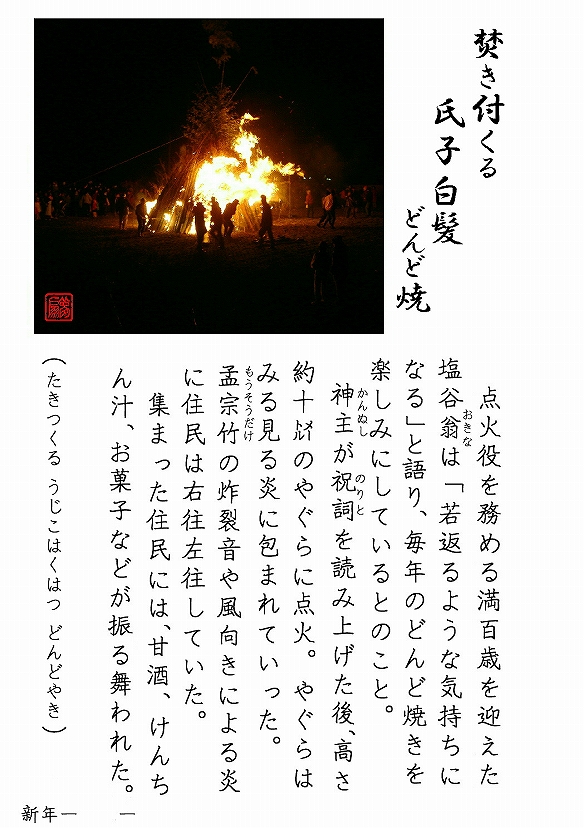 焚き付くる
氏子白髪
どんど焼
点火役を務める満百歳を迎えた
塩谷翁は「若返るような気持ちに
なる」と語り、毎年のどんど焼きを
楽しみにしているとのこと。
神主が祝詞を読み上げた後、高さ
約十㍍のやぐらに点火。やぐらは
みる見る炎に包まれていった。
孟宗竹の炸裂音や風向きによる炎
に住民は右往左往していた。
集まった住民には、甘酒、けんち
ん汁、お菓子などが振る舞われた。
おきな
かんぬし
のりと
もうそうだけ
(たきつくる うじこはくはつ どんどやき)
新年一 一